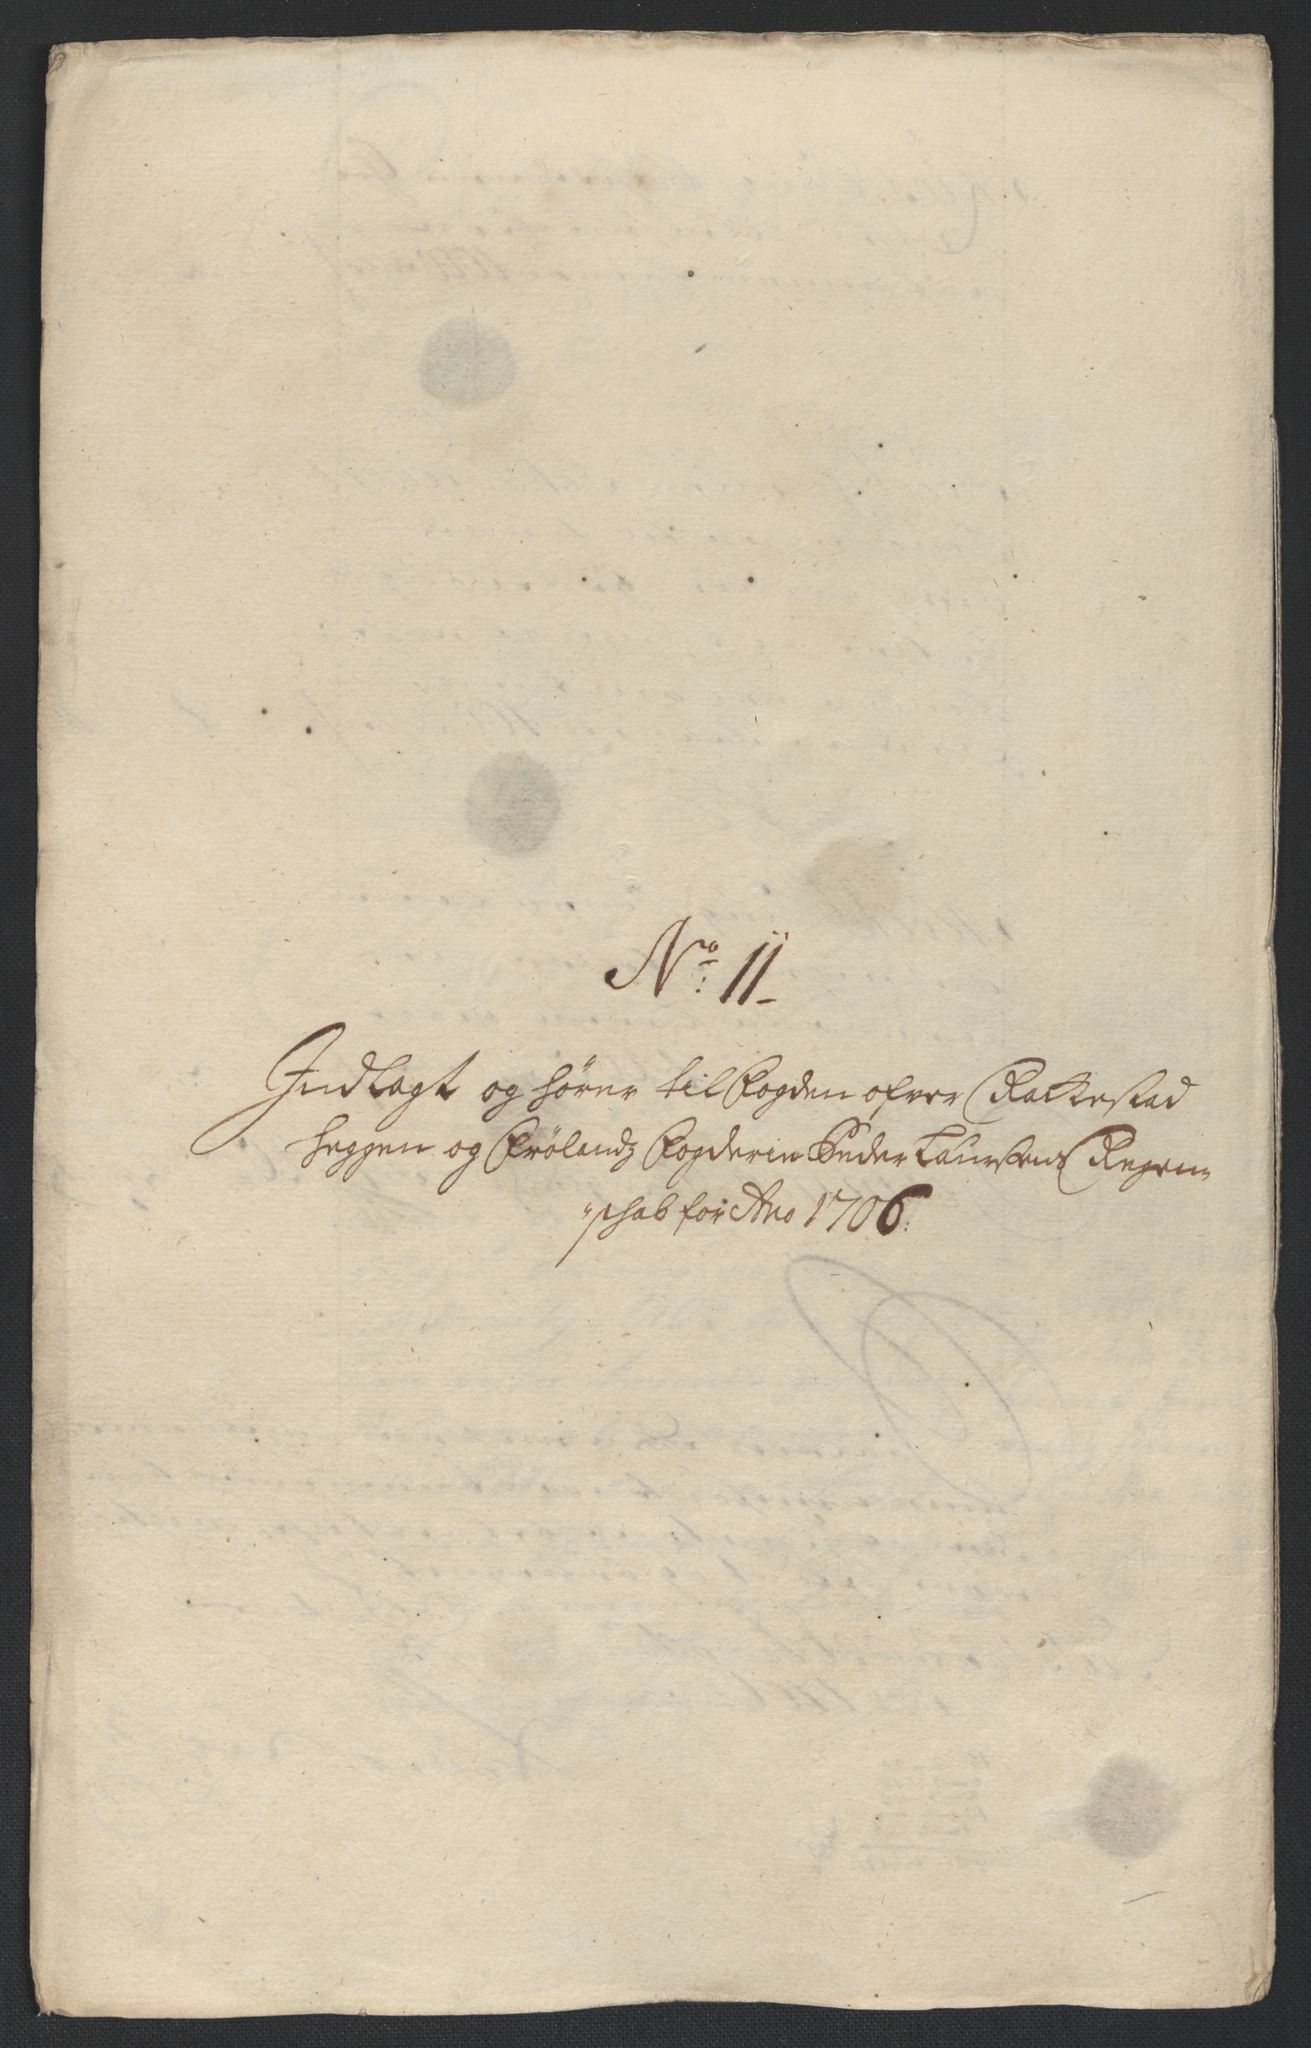 No: 11
Indlagt og hører til Fogden ofver Rakkestad
heggen og Frølandz Fogderie Peder Laursens Regen-
schab for Ano 1706.